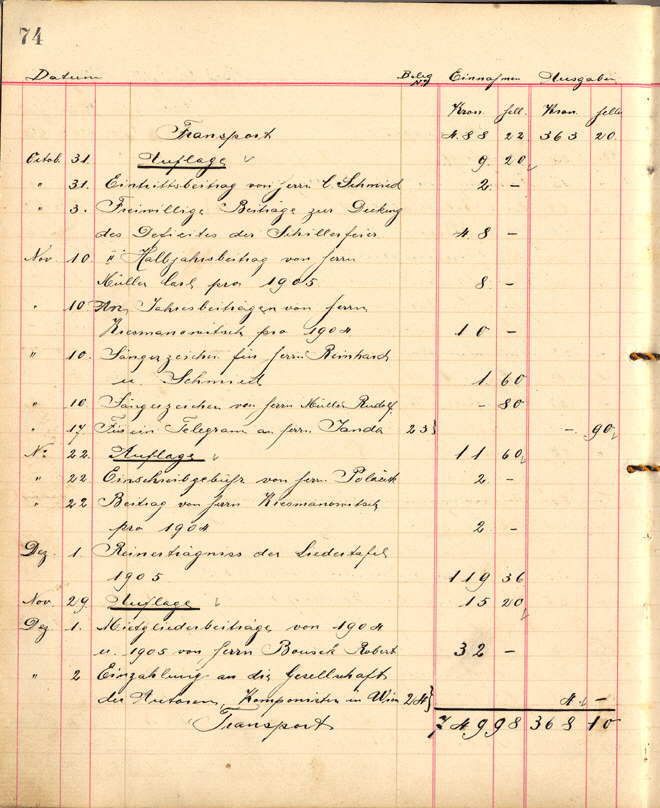 74
Datum Beleg No Einnahmen Ausgaben
Kron. Hell. Kron. Heller
Transport 488 22 363 20
Octob. 31. Auflage 9 20
" 31. Eintrittsbeitrag von Herrn C. Schmied 2 –
" 3. Freiwillige Beiträge zur Deckung
des Deficites der Schillerfeier 48 –
Nov. 10. Halbjahrsbeitrag von Herrn
Müller Carl pro 1905 8 –
" 10. An Jahresbeiträgen von Herrn
Kiesmanowitsch pro 1904 10 –
" 10. Sängerzeichen für Herrn Reinhard
u. Schmied 1 60
" 10. Sängerzeichen von Herrn Müller Rudolf – 80
" 17. Für ein Telegram an Herrn Janda 23} – 90
No. 22. Auflage 11 60
" 22 Einschreibgebühr von Herrn Polácek 2 –
" 22 Beitrag von Herrn Kiesmanowitsch
pro 1904 2 –
Dez. 1. Reinerträgniss der Liedertafel
1905 119 36
Nov. 29. Auflage 15 20
Dez 1. Mitgliederbeiträge von 1904
u. 1905 von Herrn Bousek Robert 32 –
" 2 Einzahlung an die Gesellschaft
der Autoren, Komponisten in Wien 24} 4 –
Transport 749 98 368 10